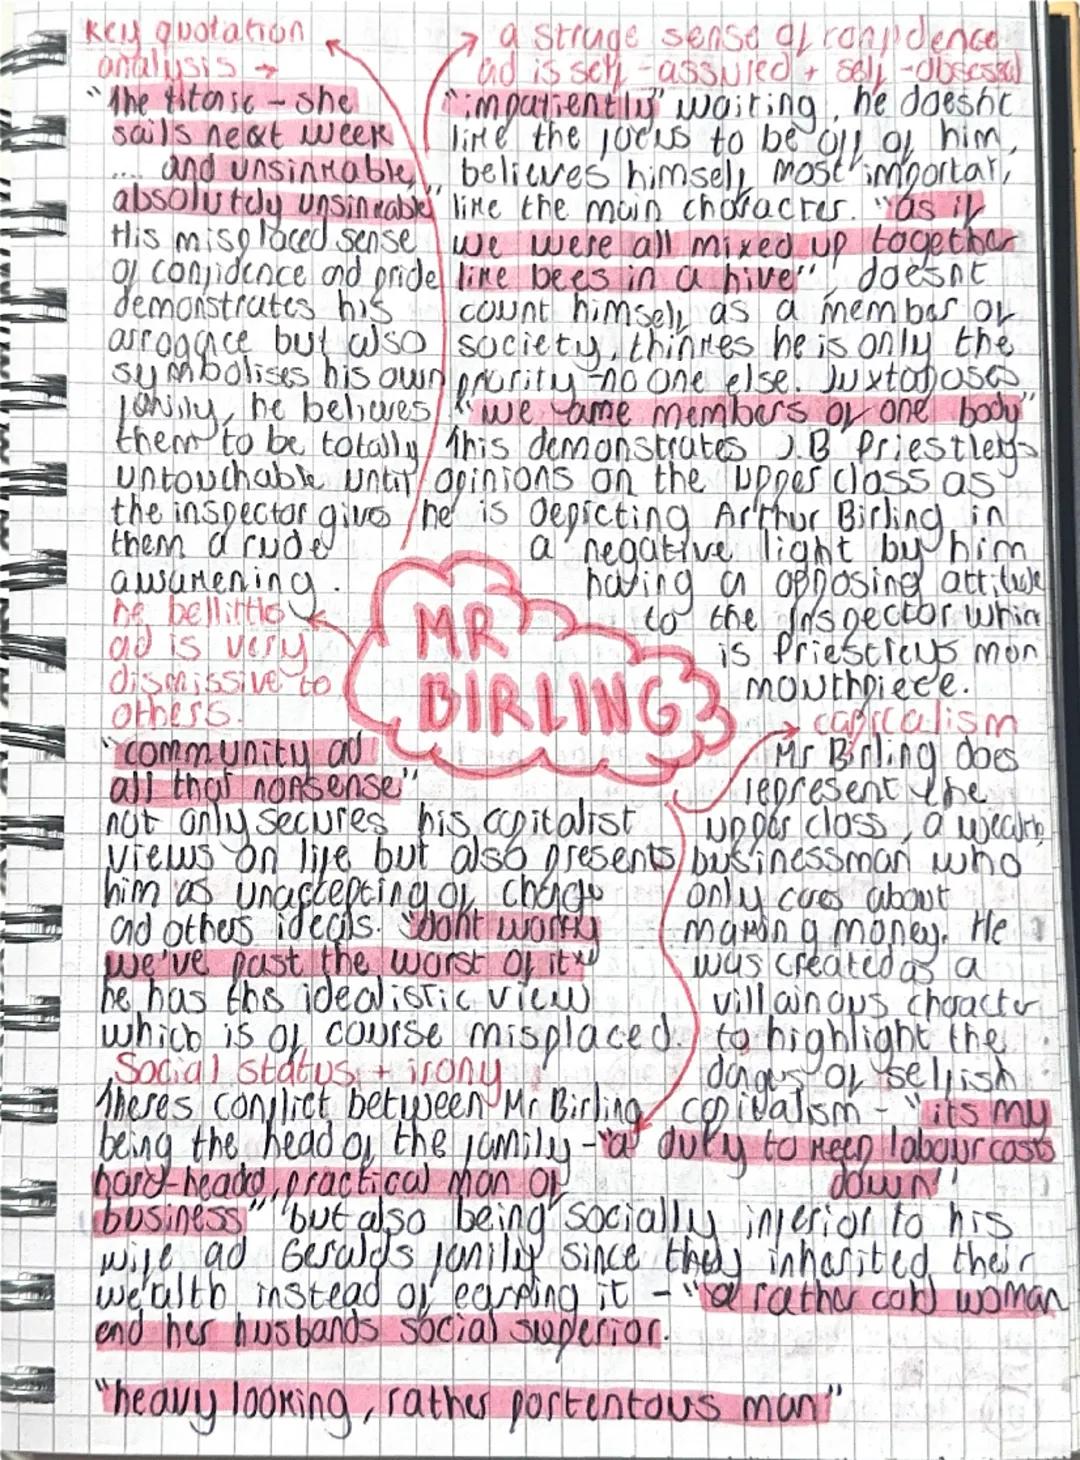 key quotation
analysis →
"the titanic - she
sails next week
.... and unsinkable,
absolutely unsinkable"
His misplaced sense
of confidence and pride
demonstrates his
arrogance but also
symbolises his own
family, he believes
them to be totally
untouchable until
the inspector gives
them a rude
awakening.
he bellittles
ad is very
dismissive to
others.
"community ad
all that nonsense"
not only secures his capitalist
views on life but also presents
him as unaccepting of change
ad others ideals. "dont worry
we've past the worst of it"
he has this idealistic view
which is of course misplaced.
a strange sense of confidence
ad is self-assured + self-obsessed
"impatiently" waiting, he doesnt
like the focus to be off of him,
believes himself most important,
like the main character. "as if
we were all mixed up together
like bees in a hive", doesnt
count himself as a member of
society, thinkes he is only the
priority - no one else. Juxtaposes
"we are members of one body"
this demonstrates J.B Priestleys
opinions on the upper class as
he is depicting Arthur Birling in
a negative light by him
having a opposing attitude
to the inspector which
is Priestleys
mouthpiece.
MR
BIRLING
capitalism
Mr Birling does
represent the
upper class, a wealthy
businessman who
only cares about
making money. He
was created as a
villainous character
to highlight the
dangers of selfish
capitalism - "its my
duty to keep labour costs
down"
Social status + irony
theres conflict between Mr Birling
being the head of the family - "a
hard-headed, practical man of
business" but also being socially inferior to his
wife ad Geralds family since they inherited their
wealth instead of earning it - "a rather cold woman
and her husbands social superior.
"heavy looking, rather portentous man"